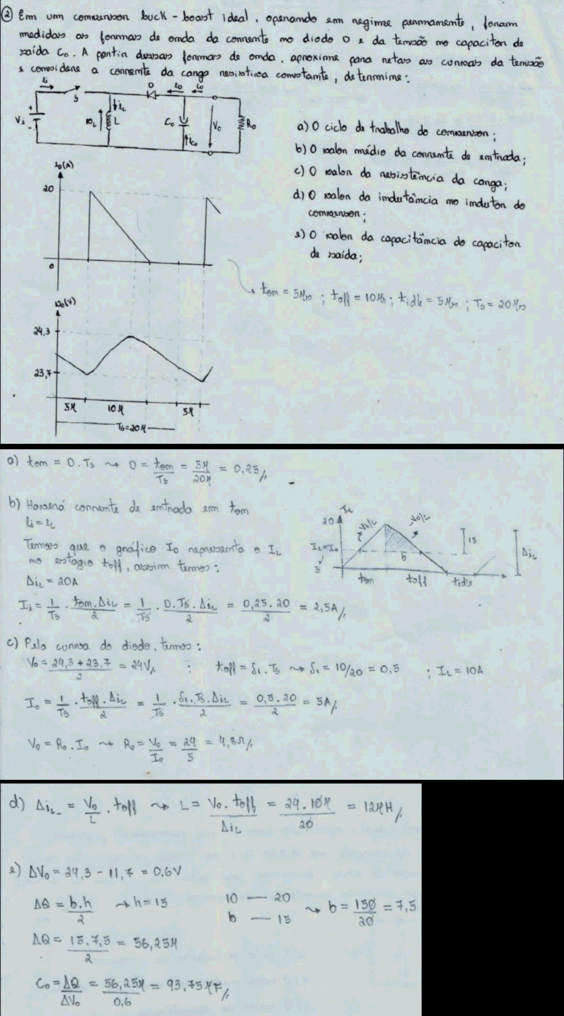 ② Em um conversor buck-boost ideal, operando em regime permanente, foram
medidas as formas de onda da corrente no diodo D e da tensão no capacitor de
saída Co. A partir dessas formas de onda, aproxime para retas as curvas da tensão
e considere a corrente da carga resistiva constante, determine:
a) O ciclo de trabalho do conversor;
b) O valor médio da corrente de entrada;
c) O valor da resistência da carga;
d) O valor da indutância no indutor do
conversor;
e) O valor da capacitância do capacitor
de saída;
Vi
S
iL
L
D
Co
Vo
Ro
iD(A)
20
0
ton = 5μs ; toff = 10μs ; tidle = 5μs ; Ts = 20μs
24,3
23,7
5μ 10μ 5μ
Ts=20μ
a) ton = D.Ts ⤳ D = ton/Ts = 5μ/20μ = 0,25
b) Haverá corrente de entrada em ton
ii = iL
Temos que o gráfico ID representa o IL
no estágio toff, assim temos:
ΔiL = 20A
Ii = 1/Ts . ton.ΔiL/2 = 1/Ts . D.Ts.ΔiL/2 = 0,25.20/2 = 2,5A
IL
20
5
b
15
ΔiL
ton toff tidle
c) Pela curva do diodo, temos:
Vo = 24,3+23,7/2 = 24V ; toff = δ1.Ts ⤳ δ1 = 10/20 = 0,5 ; IL = 10A
Io = 1/Ts . toff.ΔiL/2 = 1/Ts . δ1.Ts.ΔiL/2 = 0,5.20/2 = 5A
Vo = Ro.Io ⤳ Ro = Vo/Io = 24/5 = 4,8Ω
d) ΔiL = Vo/L . toff ⤳ L = Vo.toff/ΔiL = 24.10μ/20 = 12μH
e) ΔVo = 24,3 - 11,7 = 0,6V
ΔQ = b.h/2 → h = 15 10 — 20
b — 15 ⤳ b = 150/20 = 7,5
ΔQ = 15.7,5/2 = 56,25μ
Co = ΔQ/ΔVo = 56,25μ/0,6 = 93,75μF